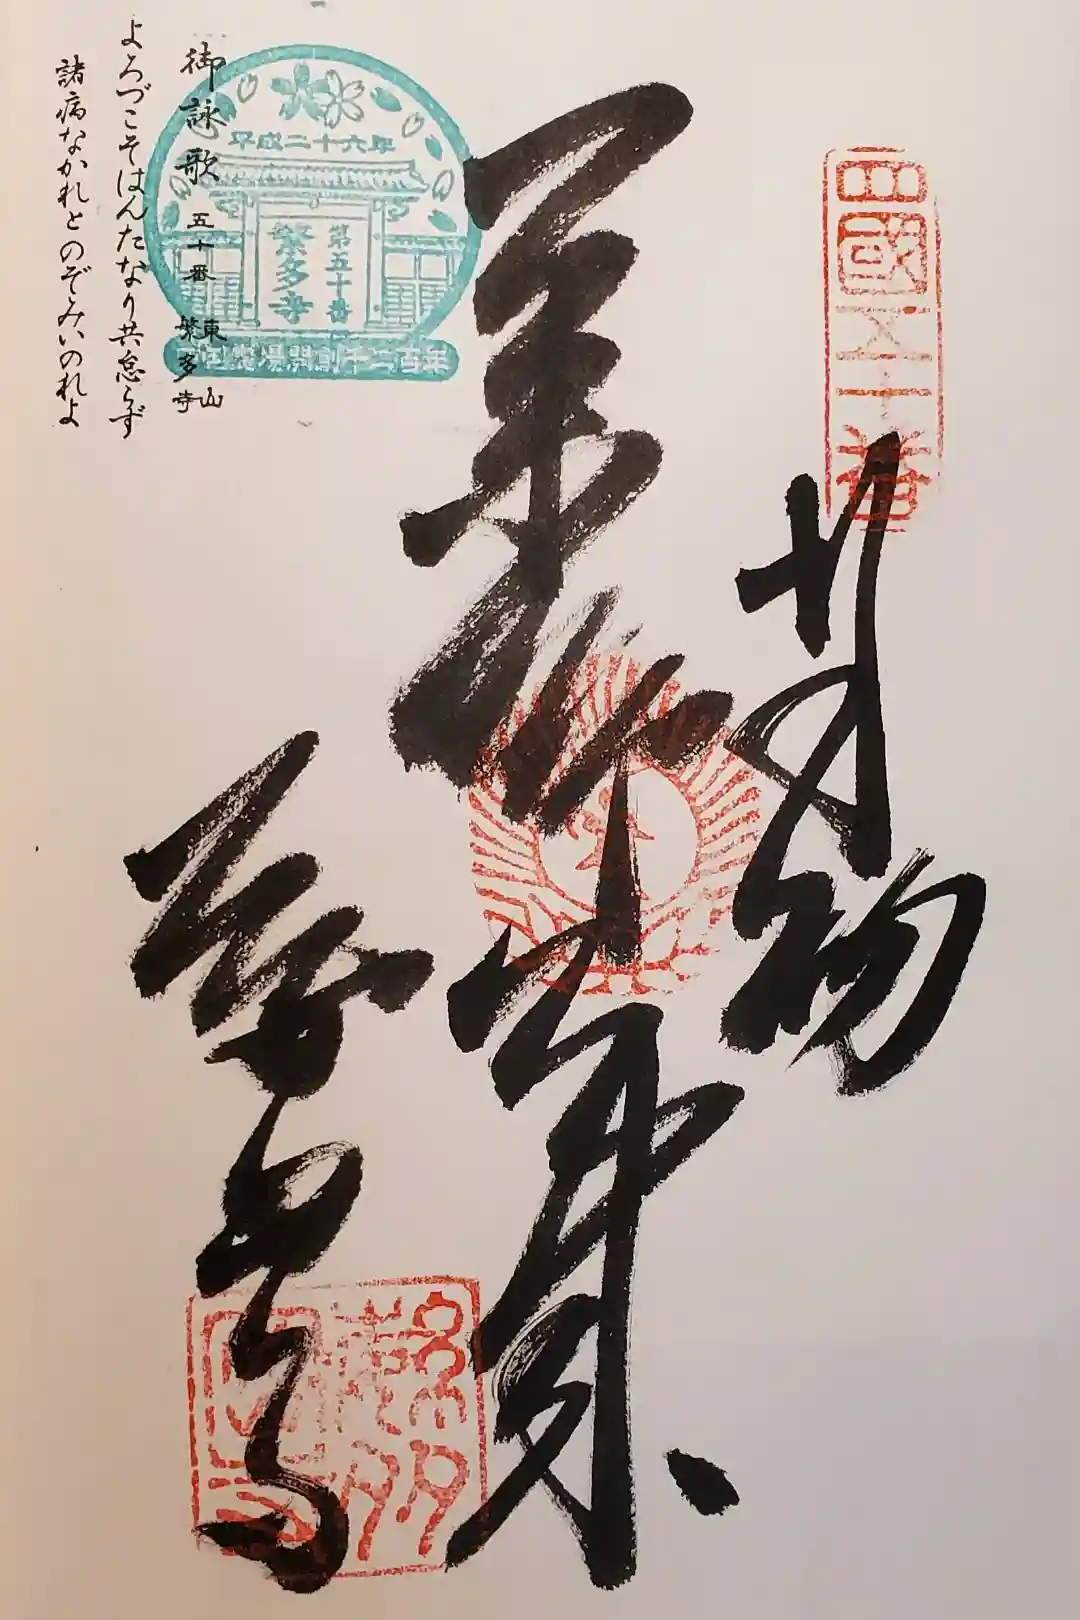 四國五十番
奉納
薬師如来
繁多寺
平成二十六年
第五十番
繁多寺
四国霊場開創千二百年
御詠歌 五十番 東山 繁多寺
よろづこそはんたなり共怠らず
諸病なかれとのぞみいのれよ